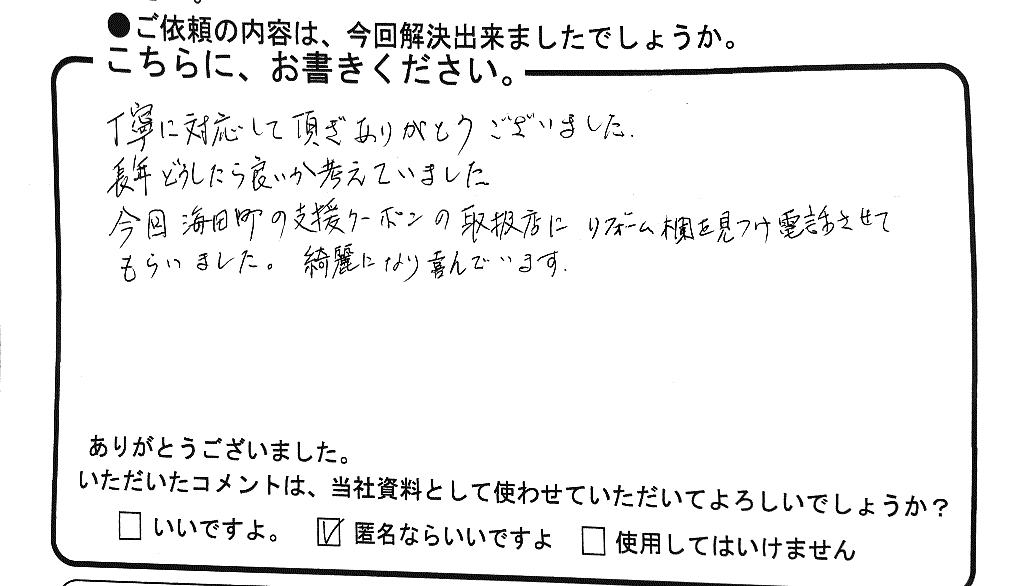 ●ご依頼の内容は、今回解決出来ましたでしょうか。
こちらに、お書きください。
丁寧に対応して頂ぎありがとうございました.
長年どうしたら良いか考えていました
今回 海田町の支援クーポンの取扱店に リフォーム欄を見つけ電話させて
もらいました。綺麗になり喜んでいます.
ありがとうございました。
いただいたコメントは、当社資料として使わせていただいてよろしいでしょうか?
□ いいですよ。 ☑ 匿名ならいいですよ □ 使用してはいけません